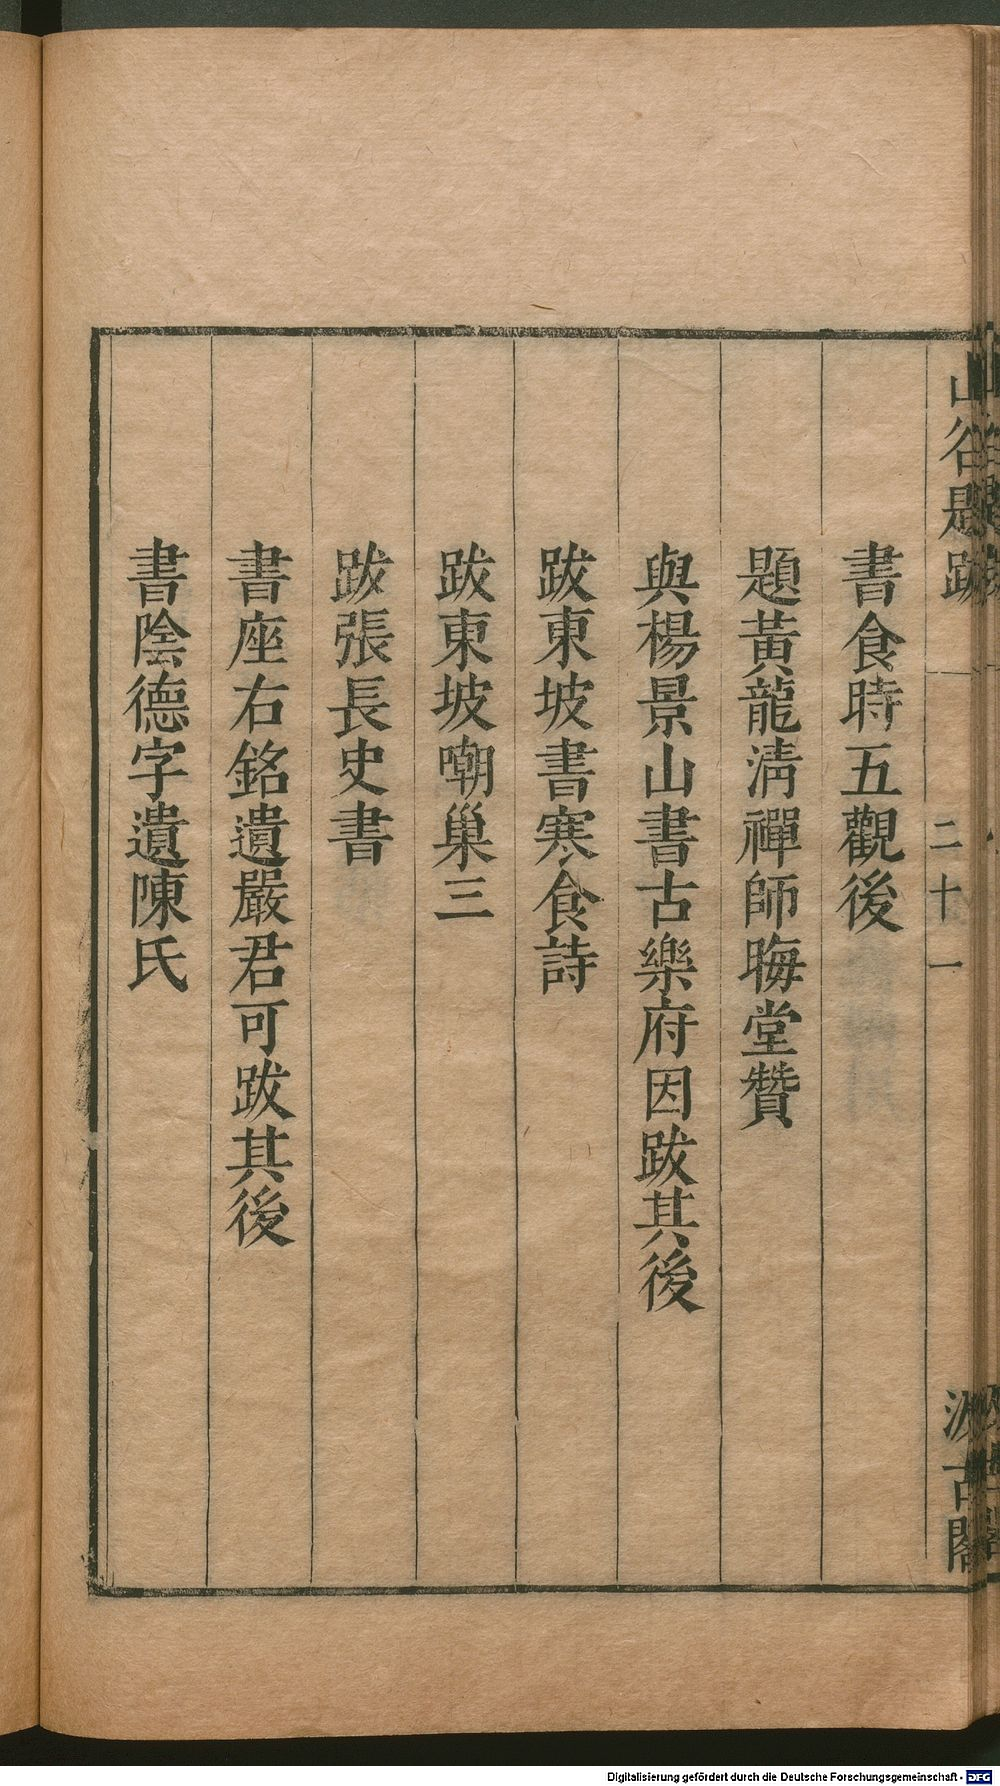 山谷題跋
二十一
汲古閣
書食時五觀後
題黃龍淸禪師晦堂贊
與楊景山書古樂府因跋其後
跋東坡書寒食詩
跋東坡嘲巢三
跋張長史書
書座右銘遺嚴君可跋其後
書陰德字遺陳氏
Digitalisierung gefördert durch die Deutsche Forschungsgemeinschaft - DFG